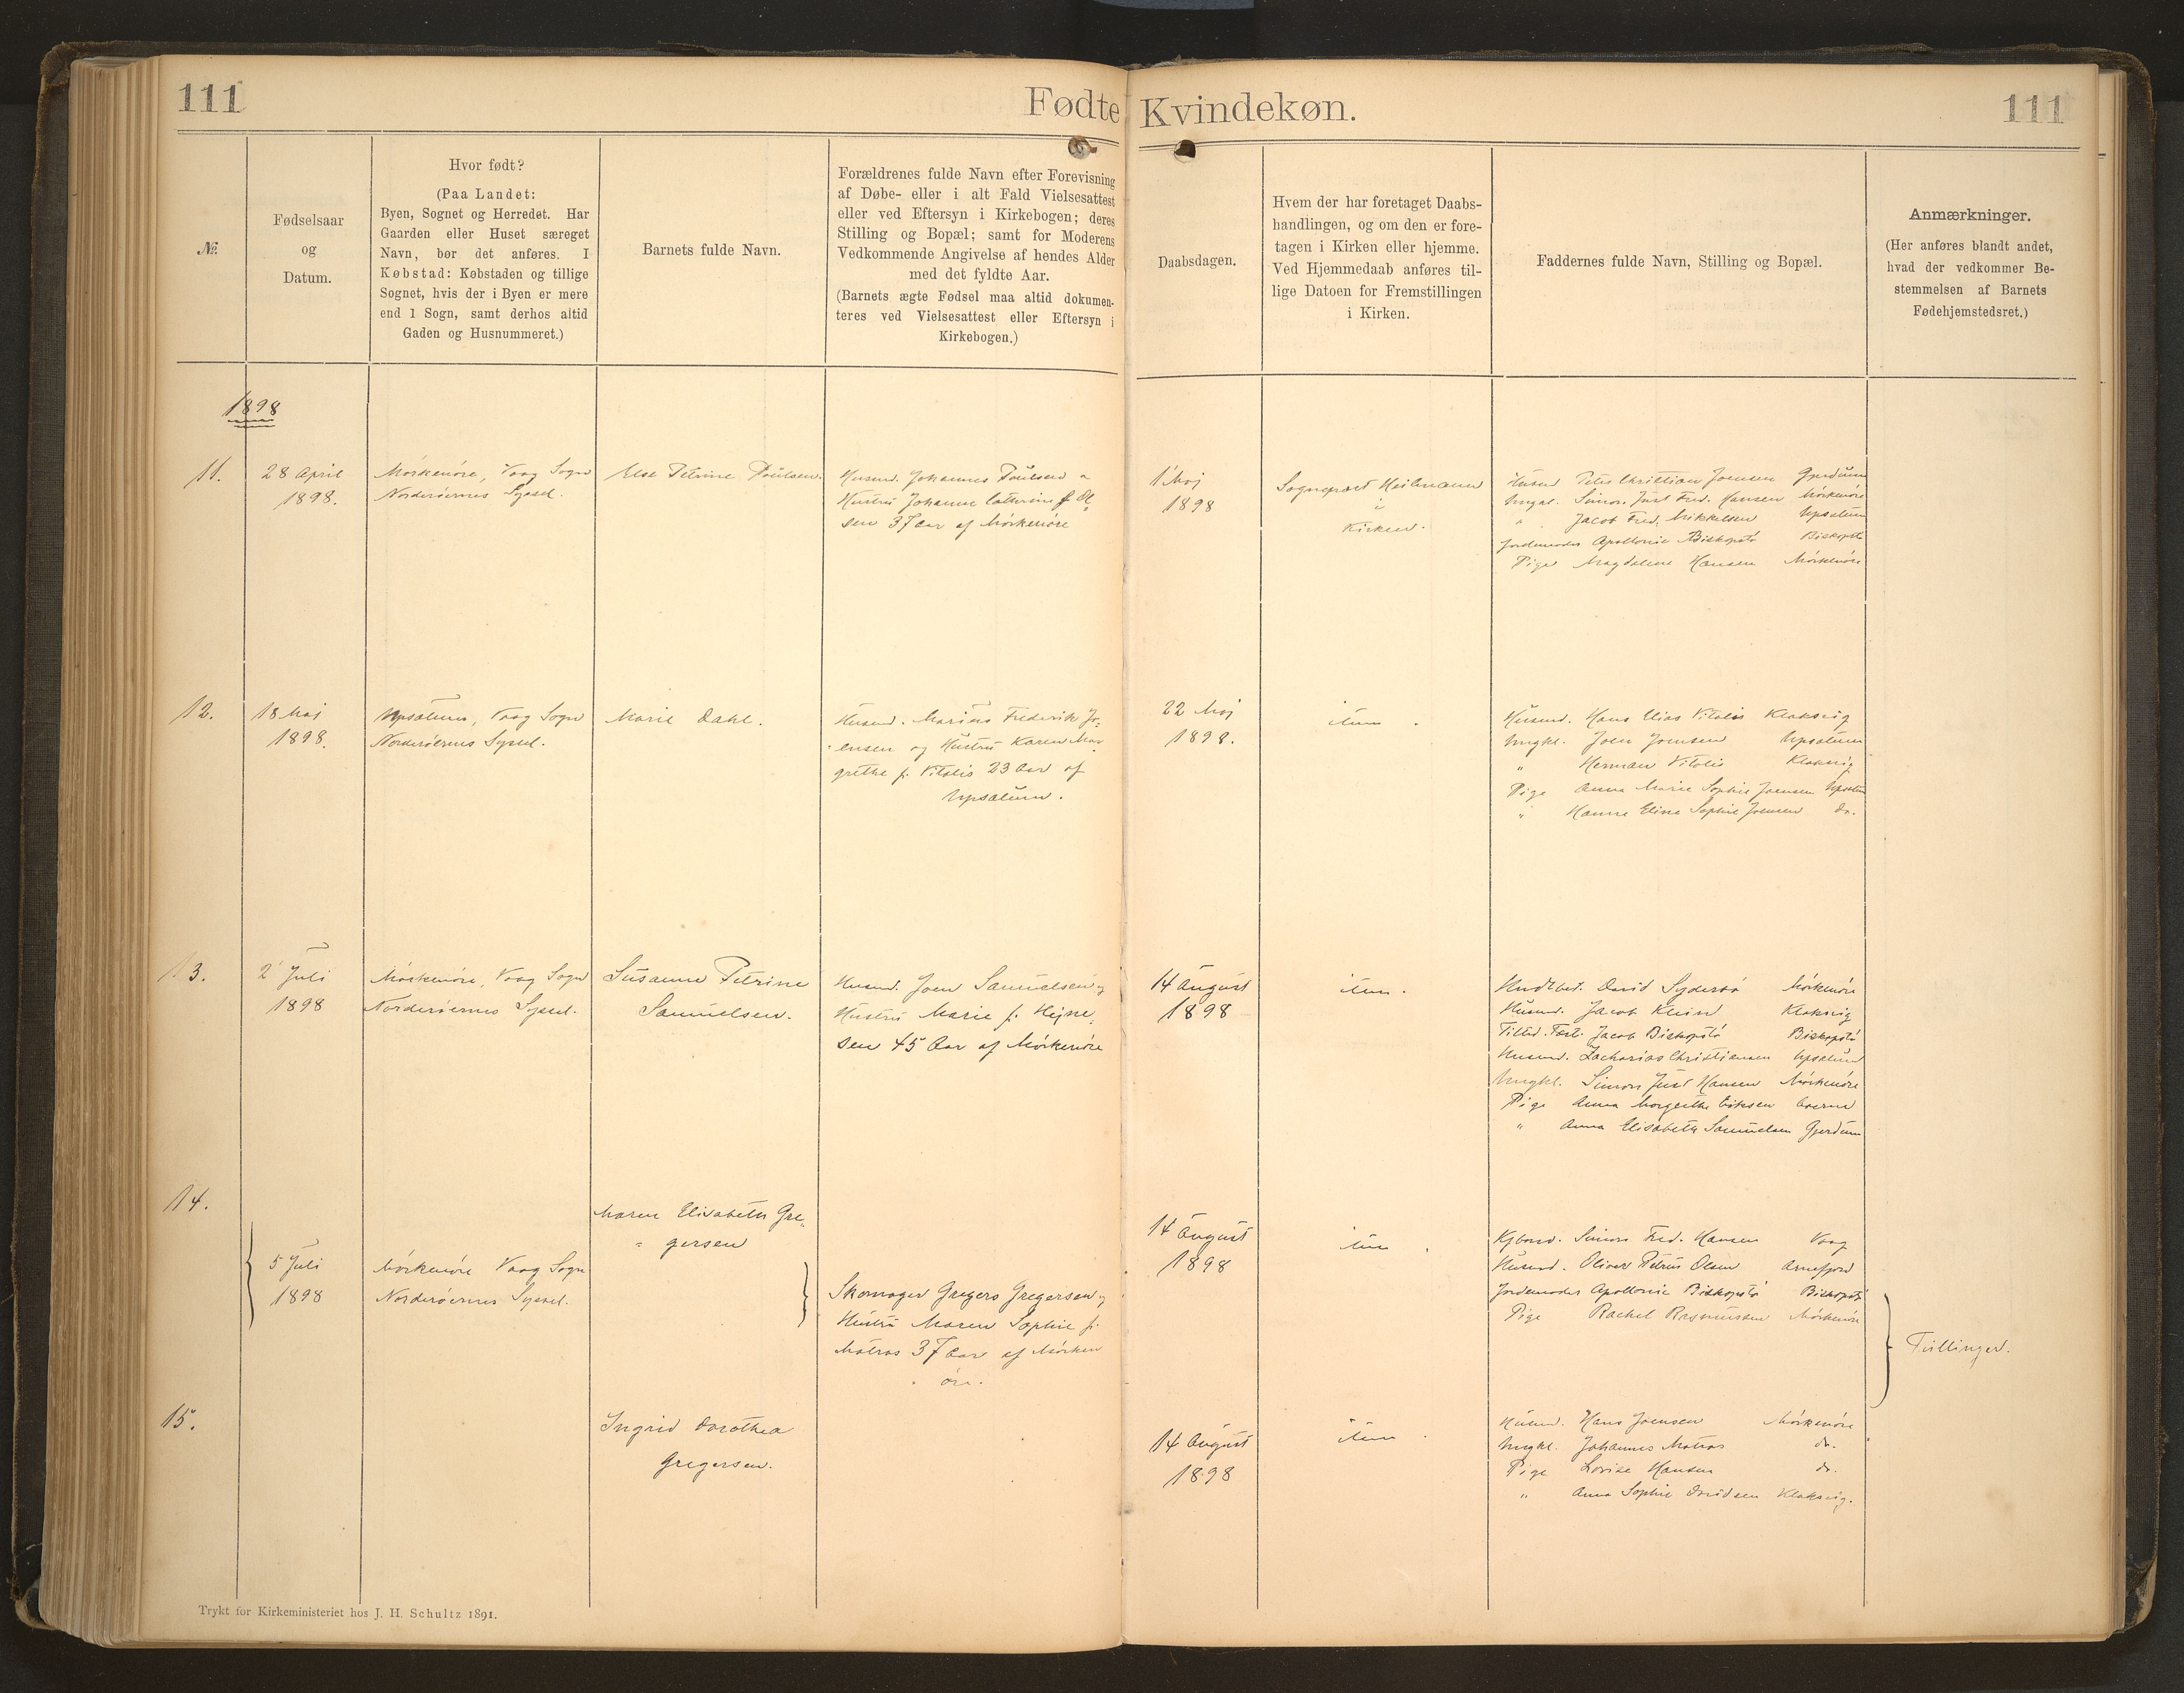 111
Fødte
Kvindekøn.
111
№
Fødselsaar
og
Datum.
Hvor født?
(Paa Landet:
Byen, Sognet og Herredet. Har
Gaarden eller Huset særeget
Navn, bør det anføres. I
Købstad: Købstaden og tillige
Sognet, hvis der i Byen er mere
end 1 Sogn, samt derhos altid
Gaden og Husnummeret.)
Barnets fulde Navn.
Forældrenes fulde Navn efter Forevisning
af Døbe- eller i alt Fald Vielsesattest
eller ved Eftersyn i Kirkebogen; deres
Stilling og Bopæl; samt for Moderens
Vedkommende Angivelse af hendes Alder
med det fyldte Aar.
(Barnets ægte Fødsel maa altid dokumen-
teres ved Vielsesattest eller Eftersyn i
Kirkebogen.)
Daabsdagen.
Hvem der har foretaget Daabs-
handlingen, og om den er fore-
tagen i Kirken eller hjemme.
Ved Hjemmedaab anføres til-
lige Datoen for Fremstillingen
i Kirken.
Faddernes fulde Navn, Stilling og Bopæl.
Anmærkninger.
(Her anføres blandt andet,
hvad der vedkommer Be-
stemmelsen af Barnets
Fødehjemstedsret.)
1898
11.
28 April
1898.
Mørkenöre, Vaag Sogn
Norderöernes Syssel.
Else Petrine Poulsen.
Husmd. Johannes Poulsen
Hustru Johanne Cathrine f. Ol
sen 37 Aar af Mörkenöre
1 Maj
1898
Sognepræst Heilmann
i
Kirken.
Husmd Peter Christian Joensen Gjerdum
Ungkl. Simon Just Fred. Hansen Mörkenöre
" Jacob Fred. Mikkelsen Upsalum
Jordemoder Apollonie Biskopstö Biskopstö
Pige Magdalene Hansen Mörkenöre
12.
18 Maj
1898.
Upsalum, Vaag Sogn
Norderöernes Syssel.
Marie Dahl.
Husmd. Marius Frederik Jo-
ensen og Hustru Karen Mar
grethe f. Vitalis 23 Aar af
Upsalum.
22 Maj
1898.
item.
Husmd. Hans Elias Vitalis Klaksvig
Ungkl. Joen Joensen Upsalum
" Herman Vitalis Klaksvig
Pige Anna Marie Sophie Joensen Upsalum
" Hanne Elina Sophie Joensen do.
13.
2 Juli
1898
Mörkenöre, Vaag Sogn
Norderöernes Syssel.
Susanne Petrine
Samuelsen.
Husmd. Joen Samuelsen og
Hustru Marie f. Hejne
sen 45 Aar af Mörkenöre
14 August
1898
item.
David Syderbö Mörkenöre
Husmd. Jacob Klein Klaksvig
Jacob Biskopstö Biskopstö
Husmd. Zacharias Christiansen Upsalum
Ungkl. Simon Just Hansen Mörkenöre
Pige Anna Margrethe
" Anna Elisabeth Samuelsen Gjerdum
14.
Maren Elisabeth Gre-
gersen
5 Juli
1898
Mörkenöre Vaag Sogn
Norderöernes Syssel.
Skomager Gregers Gregersen og
Hustru Maren Sophie f.
Matras 37 Aar af Mörken
öre.
14 August
1898
item.
Simon Fred. Hansen Vaag
Husmd. Oliver Petrus Olsen Arnefjord
Jordemoder Apollonie Biskopstö Biskopstö
Pige Rachel Rasmussen Mörkenöre
Tvillinger.
15.
Ingrid Dorothea
Gregersen.
14 August
1898
item.
Husmd. Hans Joensen Mörkenöre
Ungkl. Johannes Matras do.
Pige Lovise Hansen do.
" Anna Sophie Davidsen Klaksvig.
Trykt for Kirkeministeriet hos J. H. Schultz 1891.